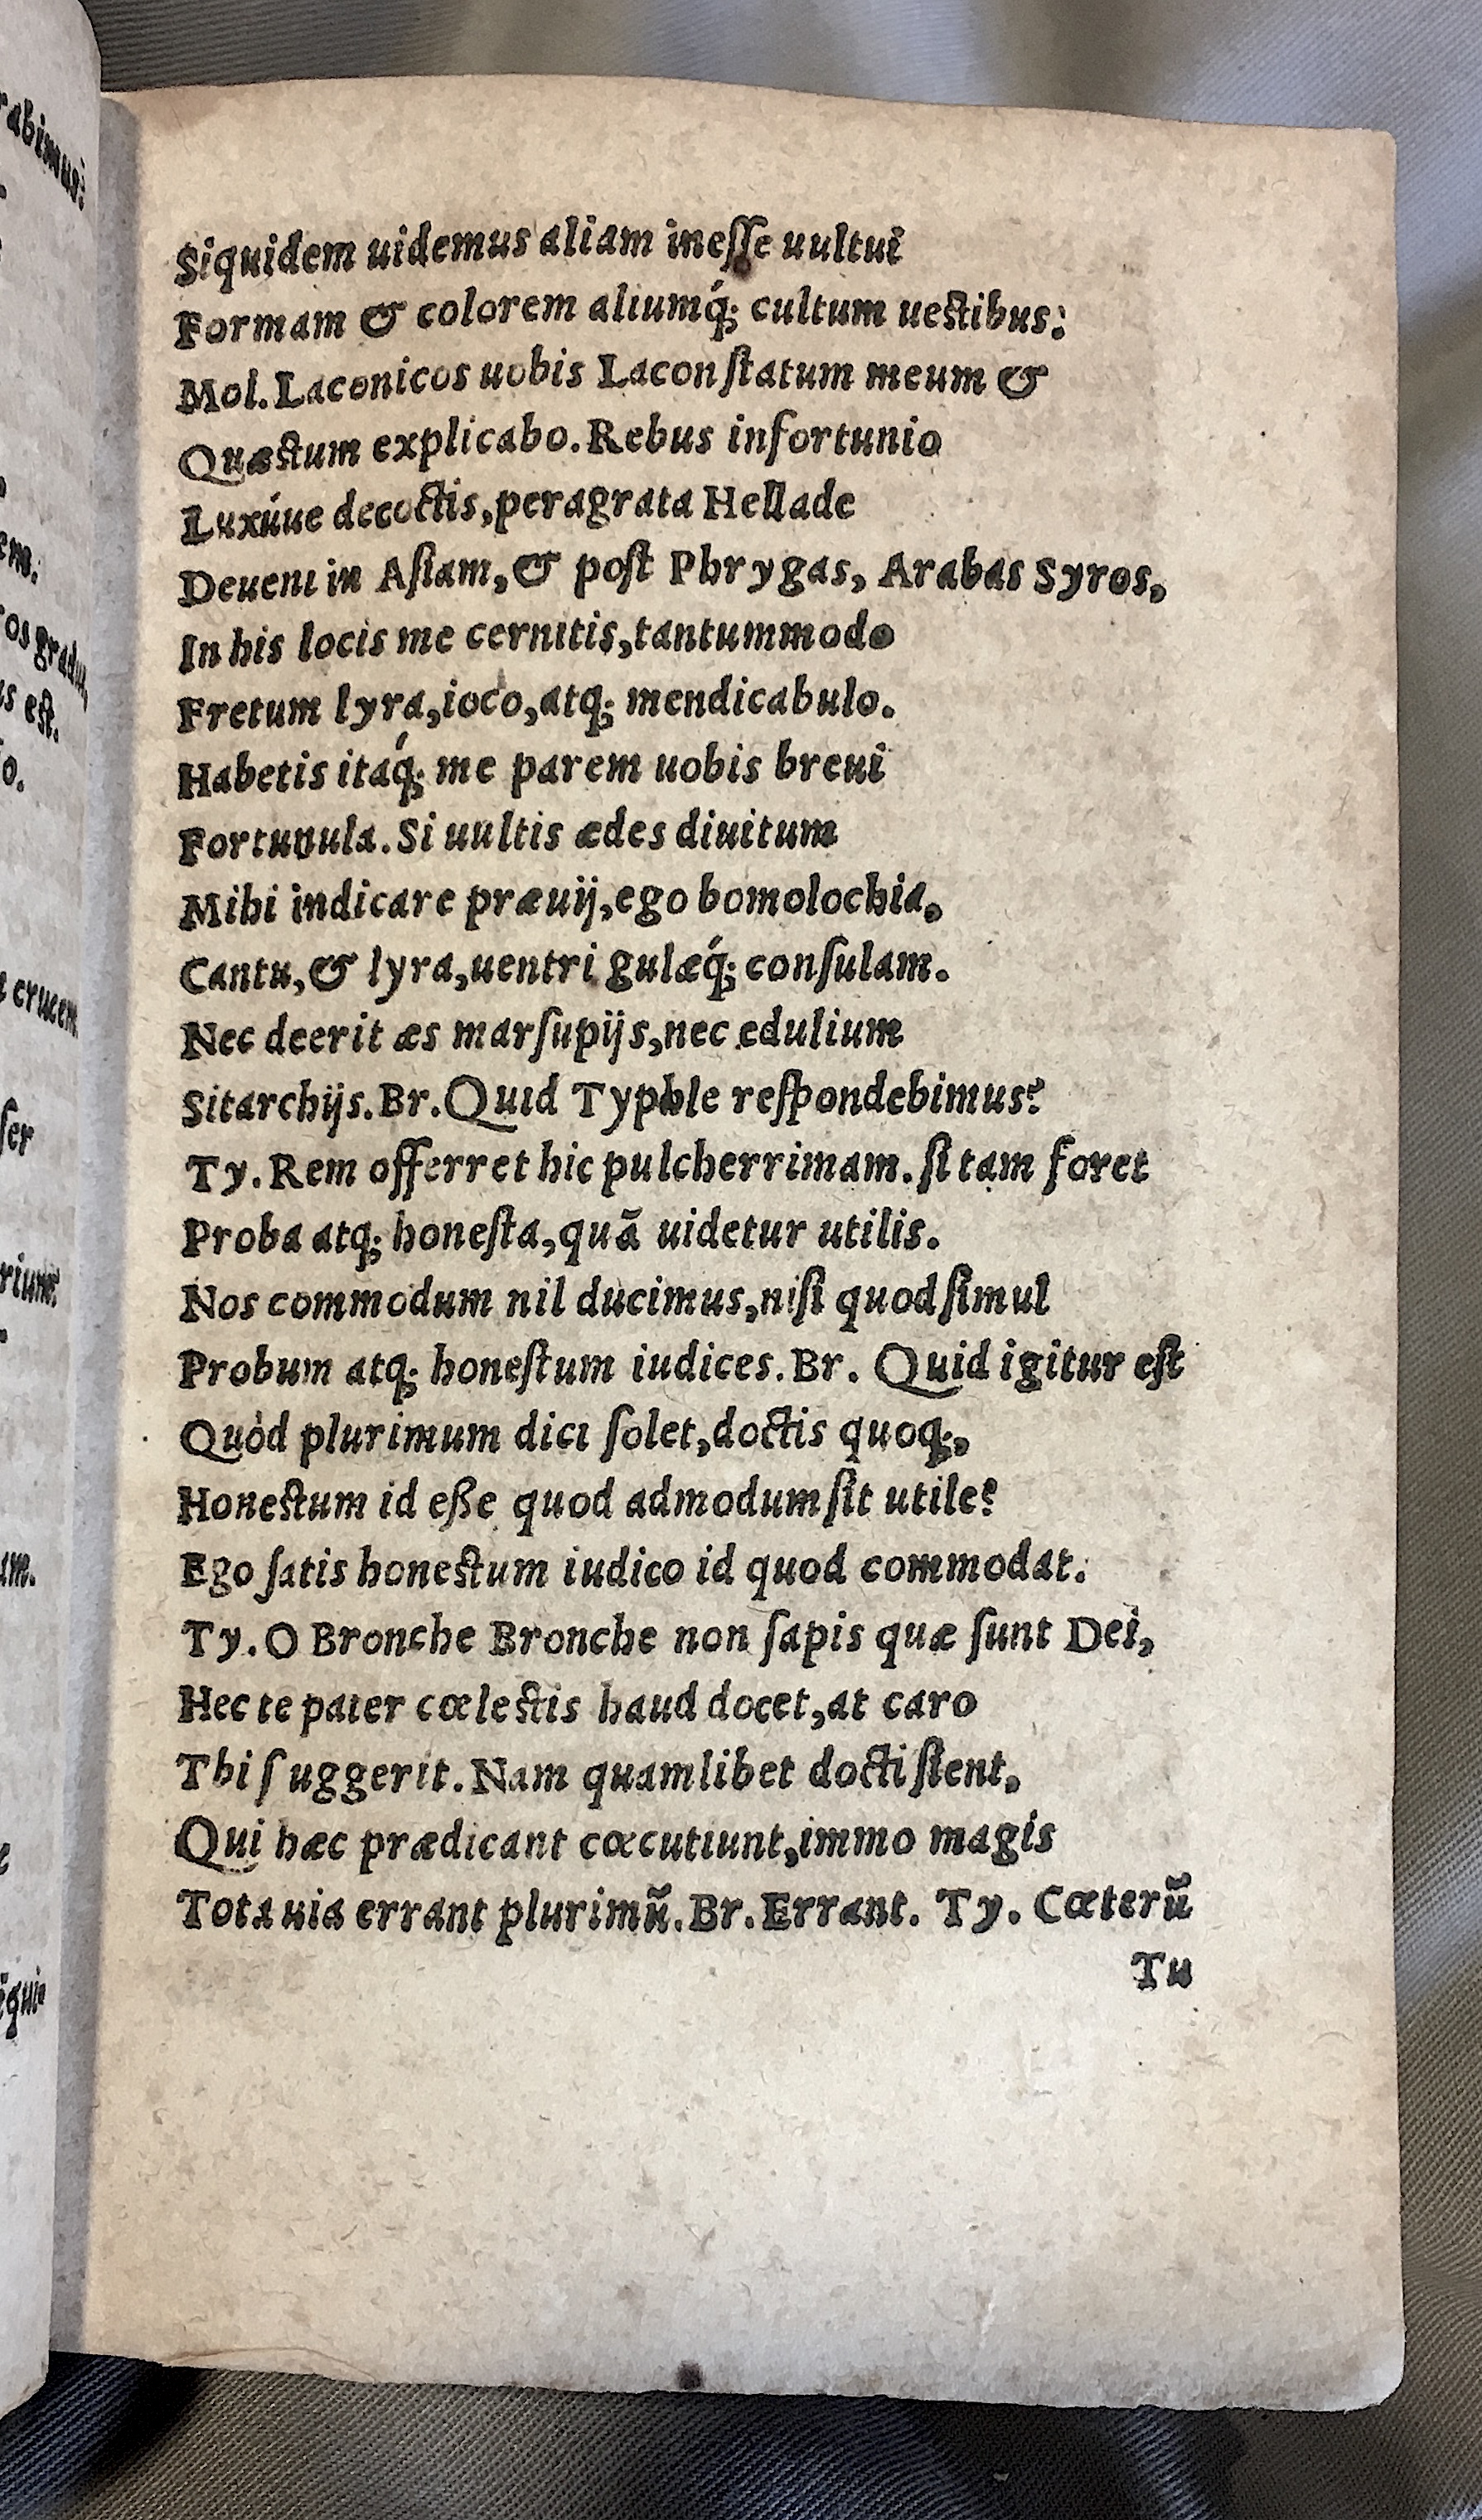 Siquidem uidemus aliam ineſſe uultui
Formam & colorem aliumq́; cultum ueſtibus:
Mol. Laconicos uobis Lacon ſtatum meum &
Quæſtum explicabo. Rebus infortunio
Luxúue decoctis, peragrata Hellade
Deueni in Aſiam, & poſt Phrygas, Arabas Syros,
In his locis me cernitis, tantummodo
Fretum lyra, ioco, atq; mendicabulo.
Habetis itaq́; me parem uobis breui
Fortunula. Si uultis ædes diuitum
Mihi indicare præuij, ego bomolochia,
Cantu, & lyra, uentri gulæq́; conſulam.
Nec deerit æs marſupijs, nec edulium
Sitarchijs. Br. Quid Typhle reſpondebimus?
Ty. Rem offerret hic pulcherrimam. ſi tam foret
Proba atq; honeſta, quā uidetur utilis.
Nos commodum nil ducimus, niſi quod ſimul
Probum atq; honeſtum iudices. Br. Quid igitur eſt
Quòd plurimum dici ſolet, doctis quoq;,
Honeſtum id eße quod admodum ſit utile?
Ego ſatis honeſtum iudico id quod commodat.
Ty. O Bronche Bronche non ſapis quæ ſunt Dei,
Hec te pater cœleſtis haud docet, at caro
Tbi ſuggerit. Nam quamlibet docti ſient,
Qui hæc prædicant cœcutiunt, immo magis
Tota uia errant plurimū. Br. Errant. Ty. Cœterū
Tu